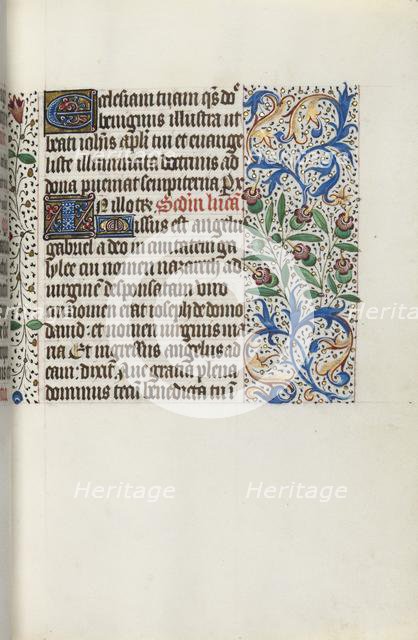 Ecclesiam tuam qs do
benignus illustra ut
beati ioh̄is ap̄li tui et euange
liste illuminata doctrinis ad
dona perueniat sempiterna. Per
In illo tꝑe Scd̄m lucā
Missus est angelus
gabriel a deo in ciuitatem ga
lylee cui nomen nazareth ad
uirginē desponsatam uiro
cui nomen erat ioseph de domo
dauid. et nomen uirginis ma
ria Et ingressus angelus ad
eam. dixit. Aue gratia plena
dominus tecū benedicta tu ī
Heritage Heritage
Heritage Heritage